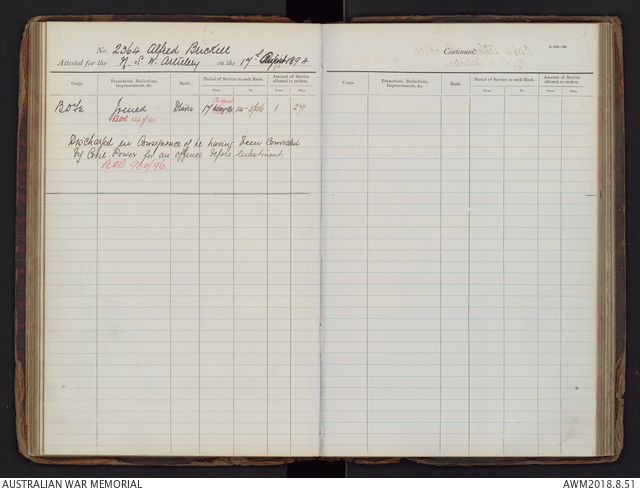 No. 2364 Alfred Brickell
Attested for the N. S. W. Artillery on the 17th August 1894
Corps. Promotions, Reductions, Imprisonments, &c. Rank. Period of Service in each Rank. Amount of Service allowed to reckon.
From To Years Days
Joined Driver 17 August 14-5/96 1 271
B.O. 124 of 94
Discharged in Consequence of he having been Convicted
by Civil Power for an offence before Enlistment
B.O. 93 of 96
Continued:
Corps. Promotions, Reductions, Imprisonments, &c. Rank. Period of Service in each Rank. Amount of Service allowed to reckon.
From To Years Days
AUSTRALIAN WAR MEMORIAL
AWM2018.8.51